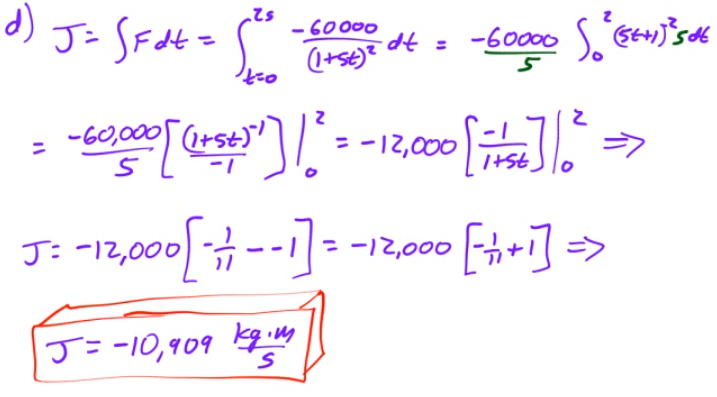 d) J = ∫Fdt = ∫_{t=0}^{2s} -60000/(1+5t)² dt = -60000/5 ∫_0^2 (5t+1)^{-2} 5dt
= -60,000/5 [(1+5t)^{-1}/-1] |_0^2 = -12,000 [-1/(1+5t)] |_0^2 ⇒
J = -12,000 [-1/11 - -1] = -12,000 [-1/11 + 1] ⇒
J = -10,909 kg·m/s